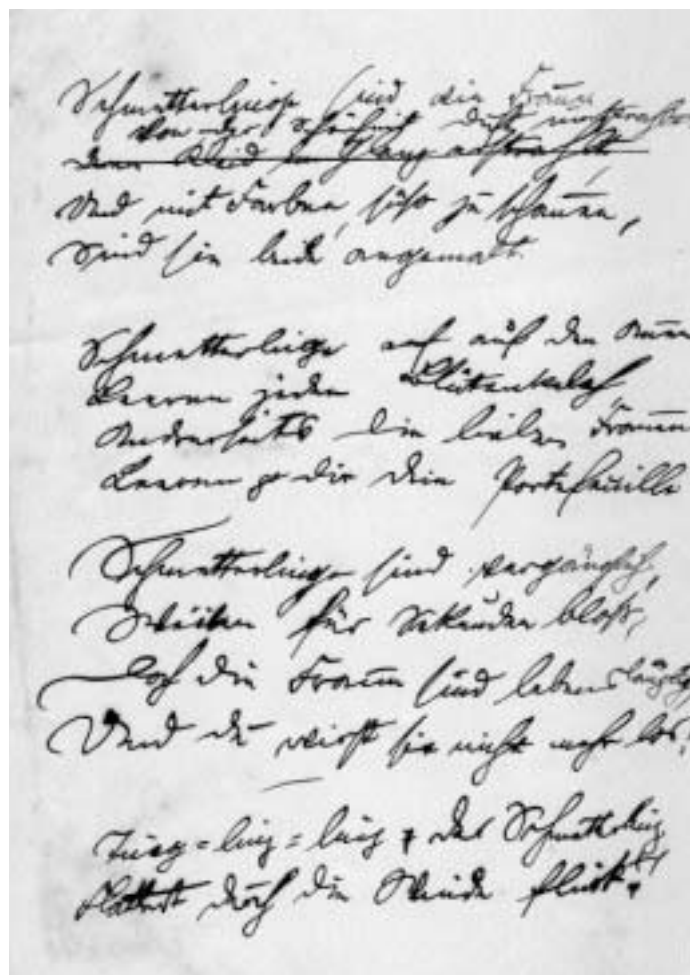 Schmetterlinge sind die Frauen
Von der Schönheit Duft
Und mit Farben, süß zu schauen,
Sind sie beide angemalt.
Schmetterlinge auf den Auen
Leeren jeden Blütenkelch
Andrerseits die lieben Frauen
Leeren dir dein Portefeuille
Schmetterlinge sind vergänglich,
für Sekunden bloß,
Doch die Frauen sind lebenslänglich
Und du wirst sie nicht mehr los!
Zing=ling=ling der Schmetterling
Flattert durch die flink!